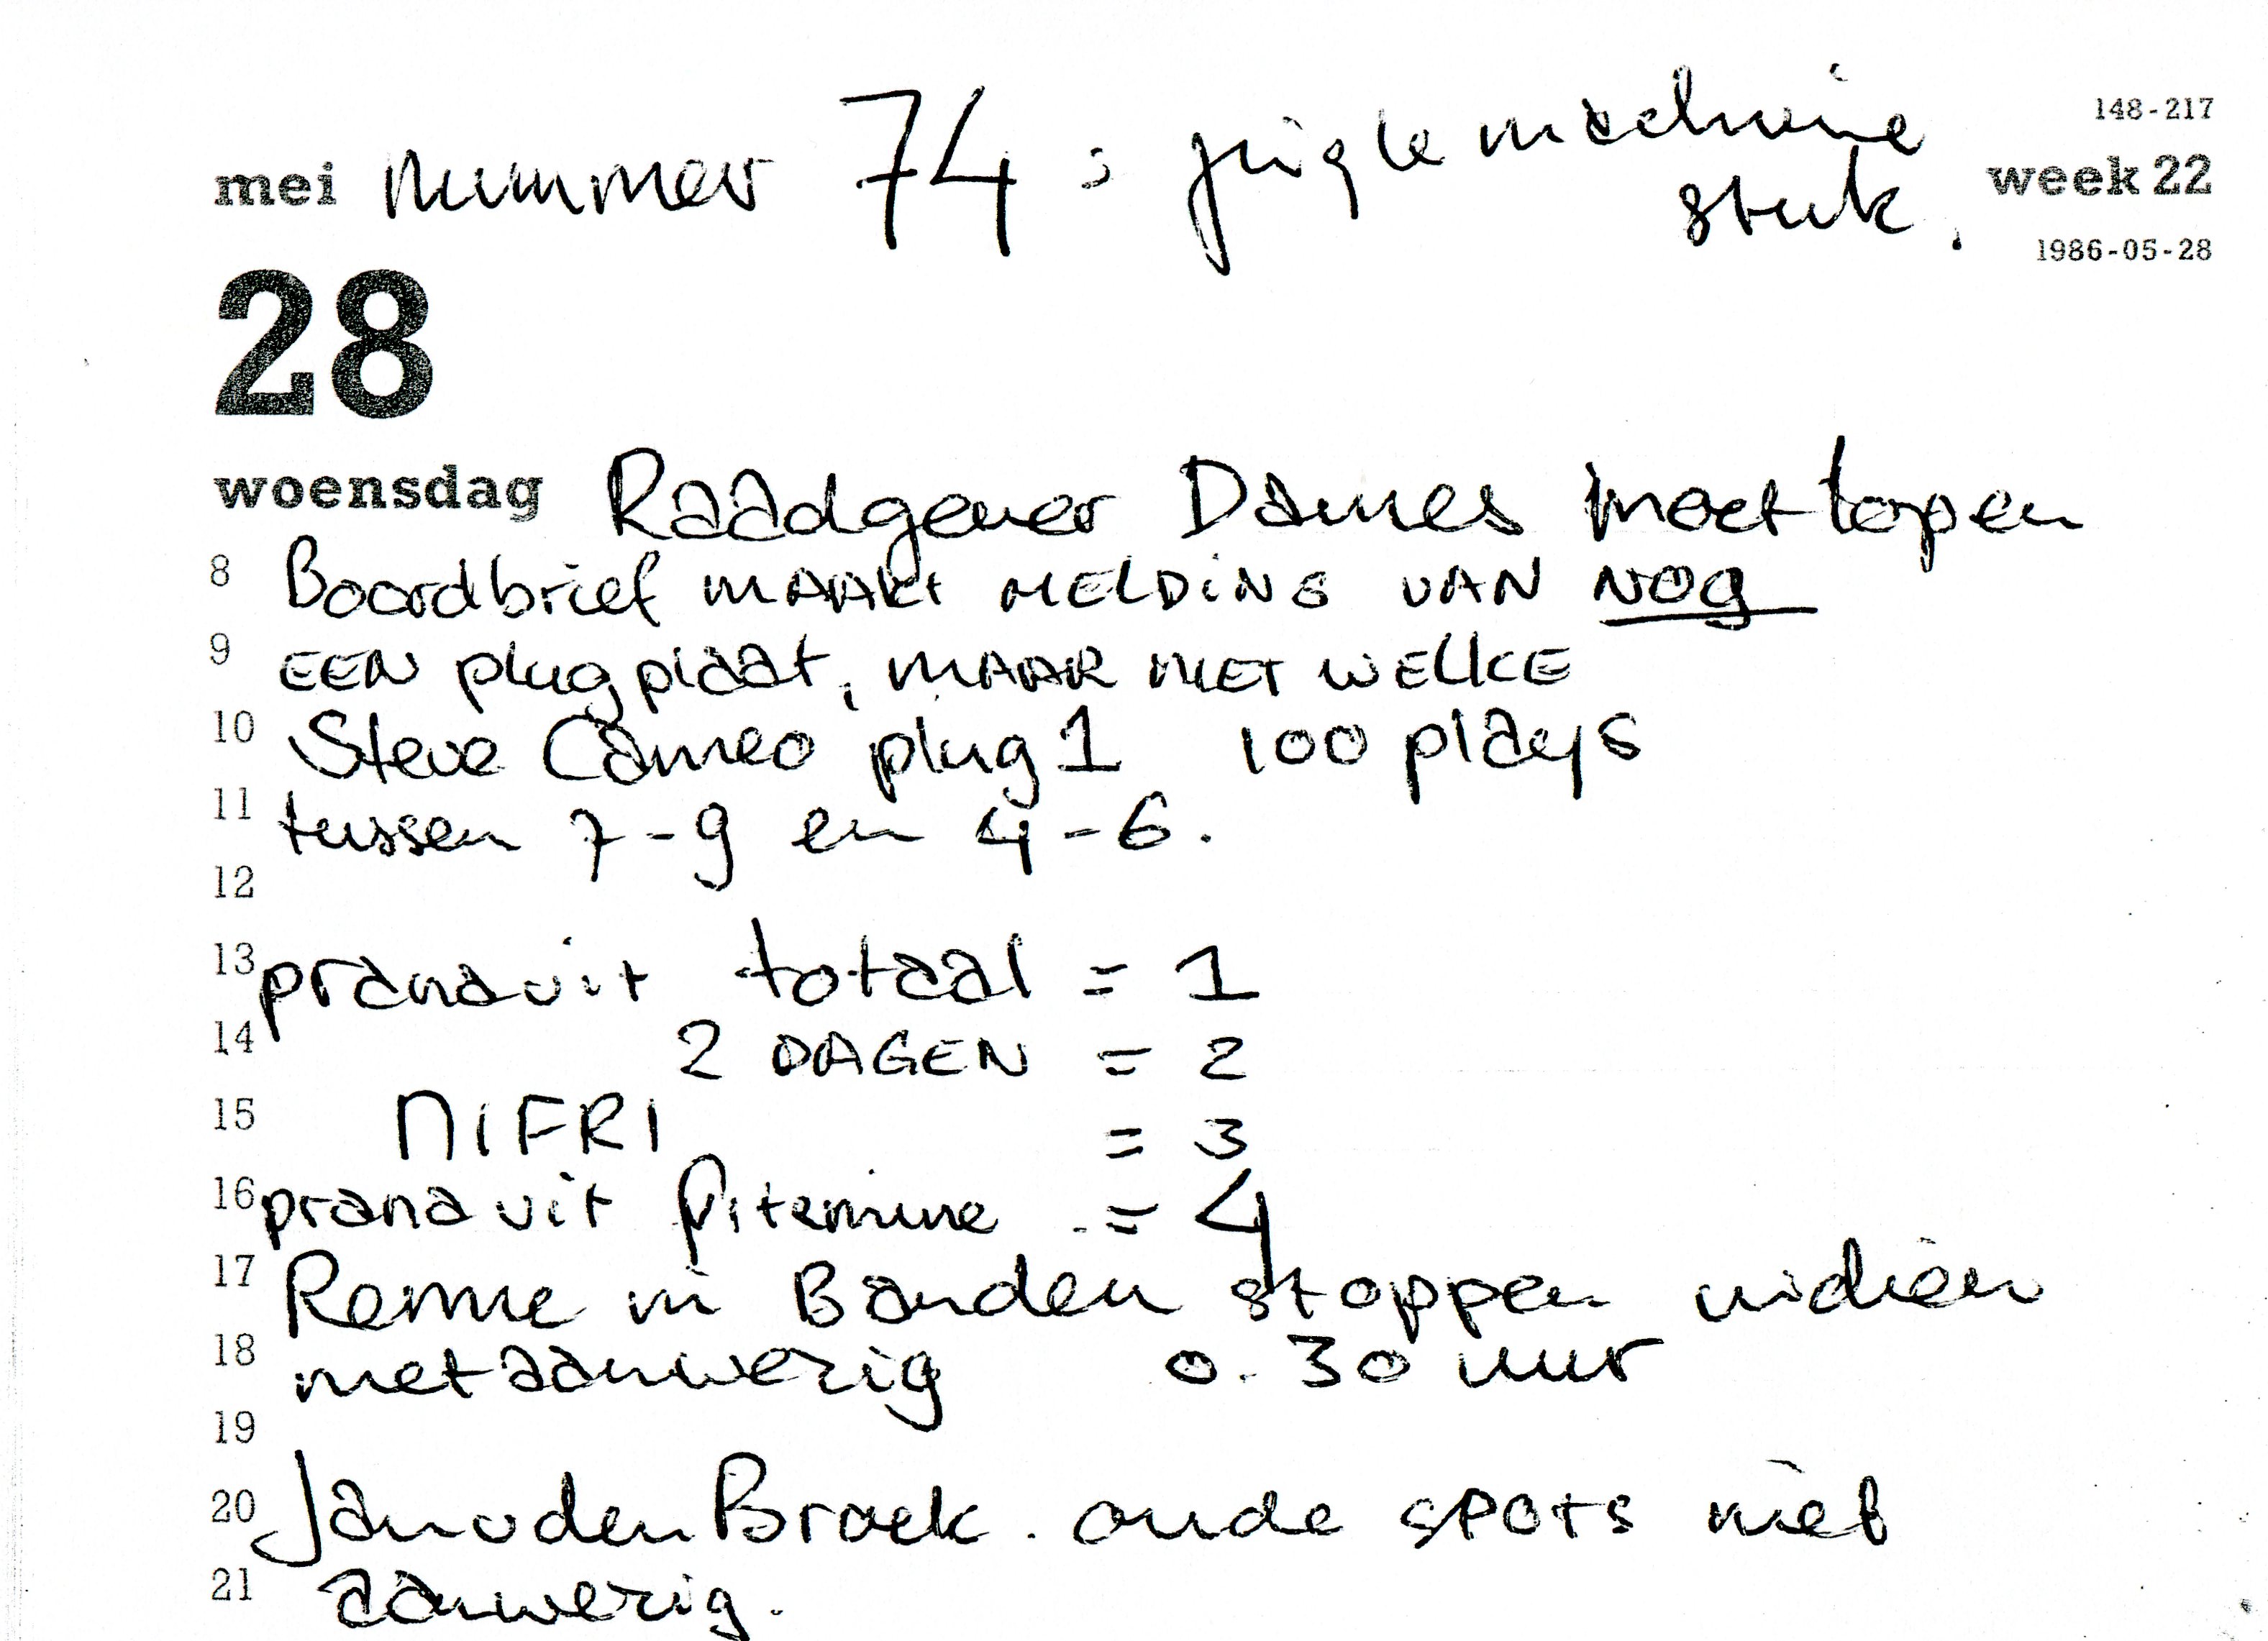 148-217
mei nummer 74 : jingle machine
stuk.
week 22
1986-05-28
28
woensdag Raadgever Dames moet lopen
8 Boordbrief MAAKt MELDING VAN NOG
9 EEN plugplaat, MAAR NIET WELKE
10 Steve Cameo plug 1 100 plays
11 tussen 7-9 en 4-6.
12
13 pranavit totaal = 1
14 2 DAGEN = 2
15 NIFRI = 3
16 prana vit vitamine = 4
17 Rennie in Banden stoppen indien
18 niet aanwezig 0.30 uur
19
20 Jan v den Broek. oude spots niet
21 aanwezig.